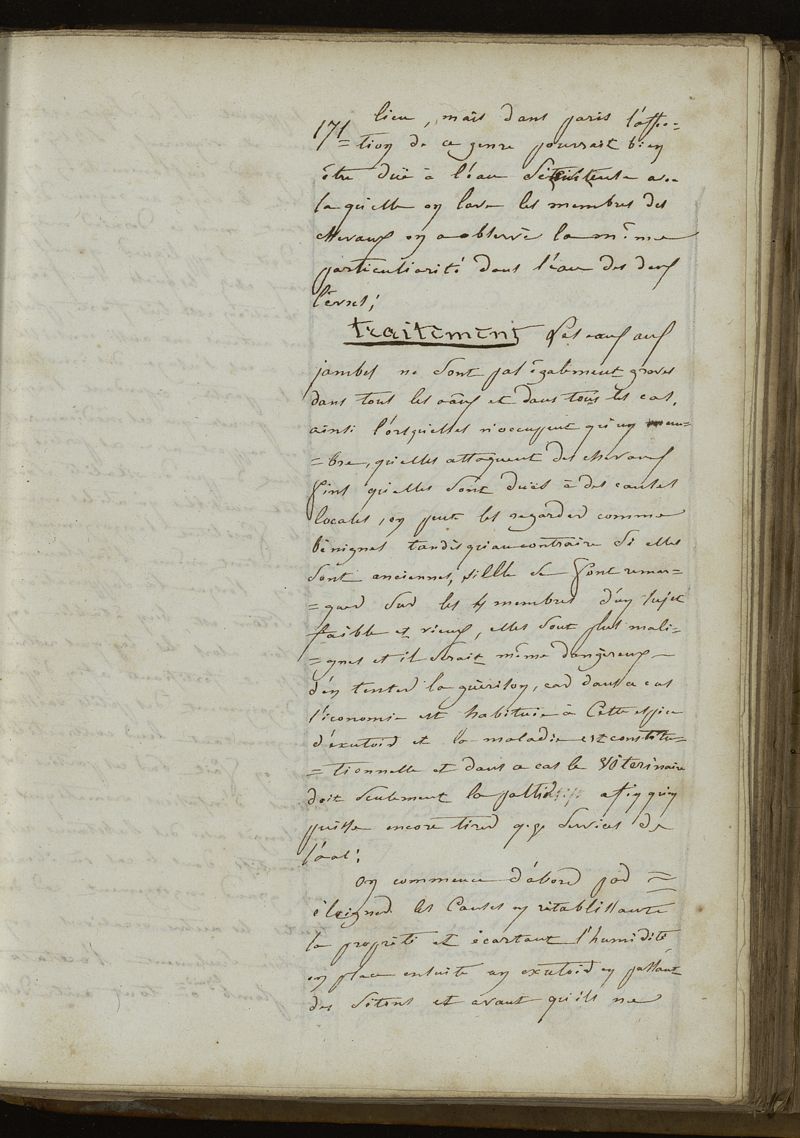 171 lieu, mais dans paris l'affec=
=tion de ce genre pourrait bien
être duë à l'eau avec
laquelle on lave les membres des
chevaux on a observé la même
particuliarité dans l'eau des
traitement Les eaux aux
jambes ne sont pas également graves
dans tous les eaux et dans tous les cas,
ainsi l'orsquelles n'occupent qu'un mem=
=bre, quelles attaquent des chevaux
fins quelles sont dués à des causes
locales, on peut les regarder comme
bénignes tandisqu'aucontraire si elles
sont anciennes, sille se font remar=
=quer sur les 4 membres d'un sujet
faible et vieux, elles sont plus mali=
=gnes et il serait même dangereux
d'en tenter la guérison, car dans ce cas
l'économie est habituée à cette espèce
d'exutoir et la maladie est constitu=
=tionnelle et dans ce cas le vétérinaire
doit seulement la afin qu'on
puisse encore tirer q.q. services de
On commence d'abord par =
éloigner les causes en rétablissante
la propreté et écartant l'humidité
on place ensuite un exutoir en passant
des sétons et avant qu'ils ne